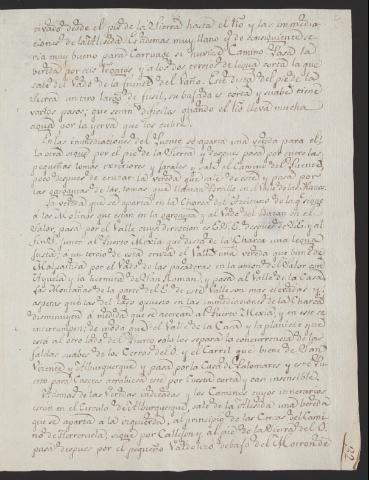 tivado desde el pie de la Sierra hasta el Rio y las inmedia-
ciones de la Aliseda. Es además muy llano y de consiguiente se-
ria muy bueno para Carruage si hubiera Camino. Pasa la
vereda por seis y a los dos tercios de legua corta la que
sale del Vado de la del Baño. Está desde el pie de la
Sierra un tiro largo de fusil, su bajada es corta y suave tiene
varios pasos, que serán dificiles quando el Rio lleva mucha
agua por la yerva que los cubre.
En las inmediaciones del Puente se aparta una vereda para el
la otra sigue por el pie de la Sierra y despues pasa por entre las
pequeñas lomas exteriores y jarales y sale al Camino del Puente
poco despues de cruzar la vereda que sale de este y pasa por
las de las lomas que llaman Portillo en el Valle de las Naves.
La vereda que se aparta en la Charca del Aceituno de la que sigue
a los Molinos que están en la y al Vado del Bazan en el
Salor, pasa por el Valle cuya direccion es E.O.E. despues de S.E. y al
fin S. junto al Puerto Mexia que dista de la Charca una legua
justa; a un tercio de esta envia el Valle una vereda que viene de
Malpartida por el Vado de las pasaderas en la union del Salor con
Ayuela y la hermita de San Roman, y pasa al Valle de la Casa.
Las Montañas de la parte del E. de este Valle son mas elevadas y
asperas que las del lado opuesto en las inmediaciones de la Charca
disminuyen a medida que se acercan al Puerto Mexia y en este se
interrumpen; de modo que el Valle de la Casa y la planicie que
está al otro lado del Puerto solo los separa la concurrencia de las
faldas suabes de los Cerros del O. y el Carril que viene de San
Vicente y Alburquerque y pasa por la Casa de Palomares y este Puer-
to para Caceres atraviesa este por Cuesta corta y casi insensible.
Ademas de las Veredas indicadas y los Caminos cuyos itinerarios
estan en el Circulo de Alburquerque, sale de la Aliseda una vereda
que se aparta a la izquierda, al principio de las Cercas del Cami-
no de Herreruela, sigue por Callejon y al pie de la Sierra del O.
pasa despues por el pequeño Valdelazo debajo del Morron de